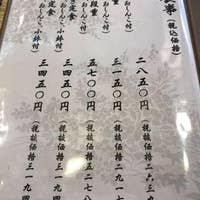 (税込価格)
二八五〇円(税抜価格二六三九
三一五〇円(税抜価格二九一七
段重
おしんこ付
五七〇〇円(税抜価格五二七八
定食
おしんこ 小鉢付
三四五〇円(税抜価格三一九四
定食
おしんこ 小鉢付
三四五〇円(税抜価格三一九四